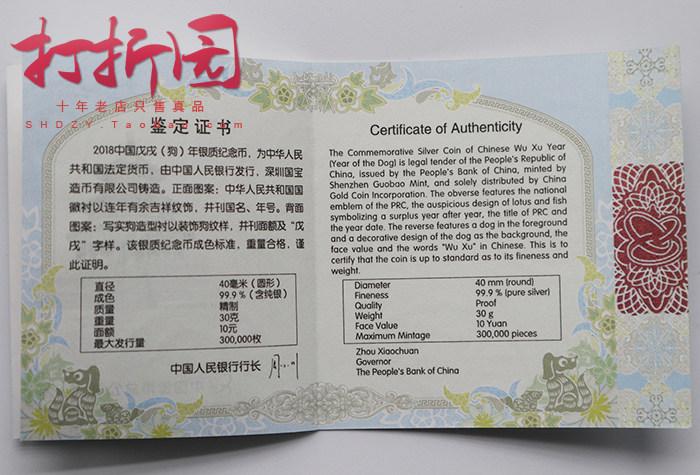 打折园
十年老店只售真品
SHDZY.Taobao.com
鉴定证书
2018中国戊戌（狗）年银质纪念币，为中华人民
共和国法定货币，由中国人民银行发行，深圳国宝
造币有限公司铸造。正面图案：中华人民共和国国
徽衬以连年有余吉祥纹饰，并刊国名、年号。背面
图案：写实狗造型衬以装饰狗纹样，并刊面额及“戊
戌”字样。该银质纪念币成色标准，重量合格，谨
此证明。
直径 40毫米（圆形）
成色 99.9%（含纯银）
质量 精制
重量 30克
面额 10元
最大发行量 300,000枚
中国人民银行行长
Certificate of Authenticity
The Commemorative Silver Coin of Chinese Wu Xu Year
(Year of the Dog) is legal tender of the People's Republic of
China, issued by the People's Bank of China, minted by
Shenzhen Guobao Mint, and solely distributed by China
Gold Coin Incorporation. The obverse features the national
emblem of the PRC, the auspicious design of lotus and fish
symbolizing a surplus year after year, the title of PRC and
the year date. The reverse features a dog in the foreground
and a decorative design of the dog as the background, the
face value and the words "Wu Xu" in Chinese. This is to
certify that the coin is up to standard as to its fineness and
weight.
Diameter 40 mm (round)
Fineness 99.9% (pure silver)
Quality Proof
Weight 30 g
Face Value 10 Yuan
Maximum Mintage 300,000 pieces
Zhou Xiaochuan
Governor
The People's Bank of China